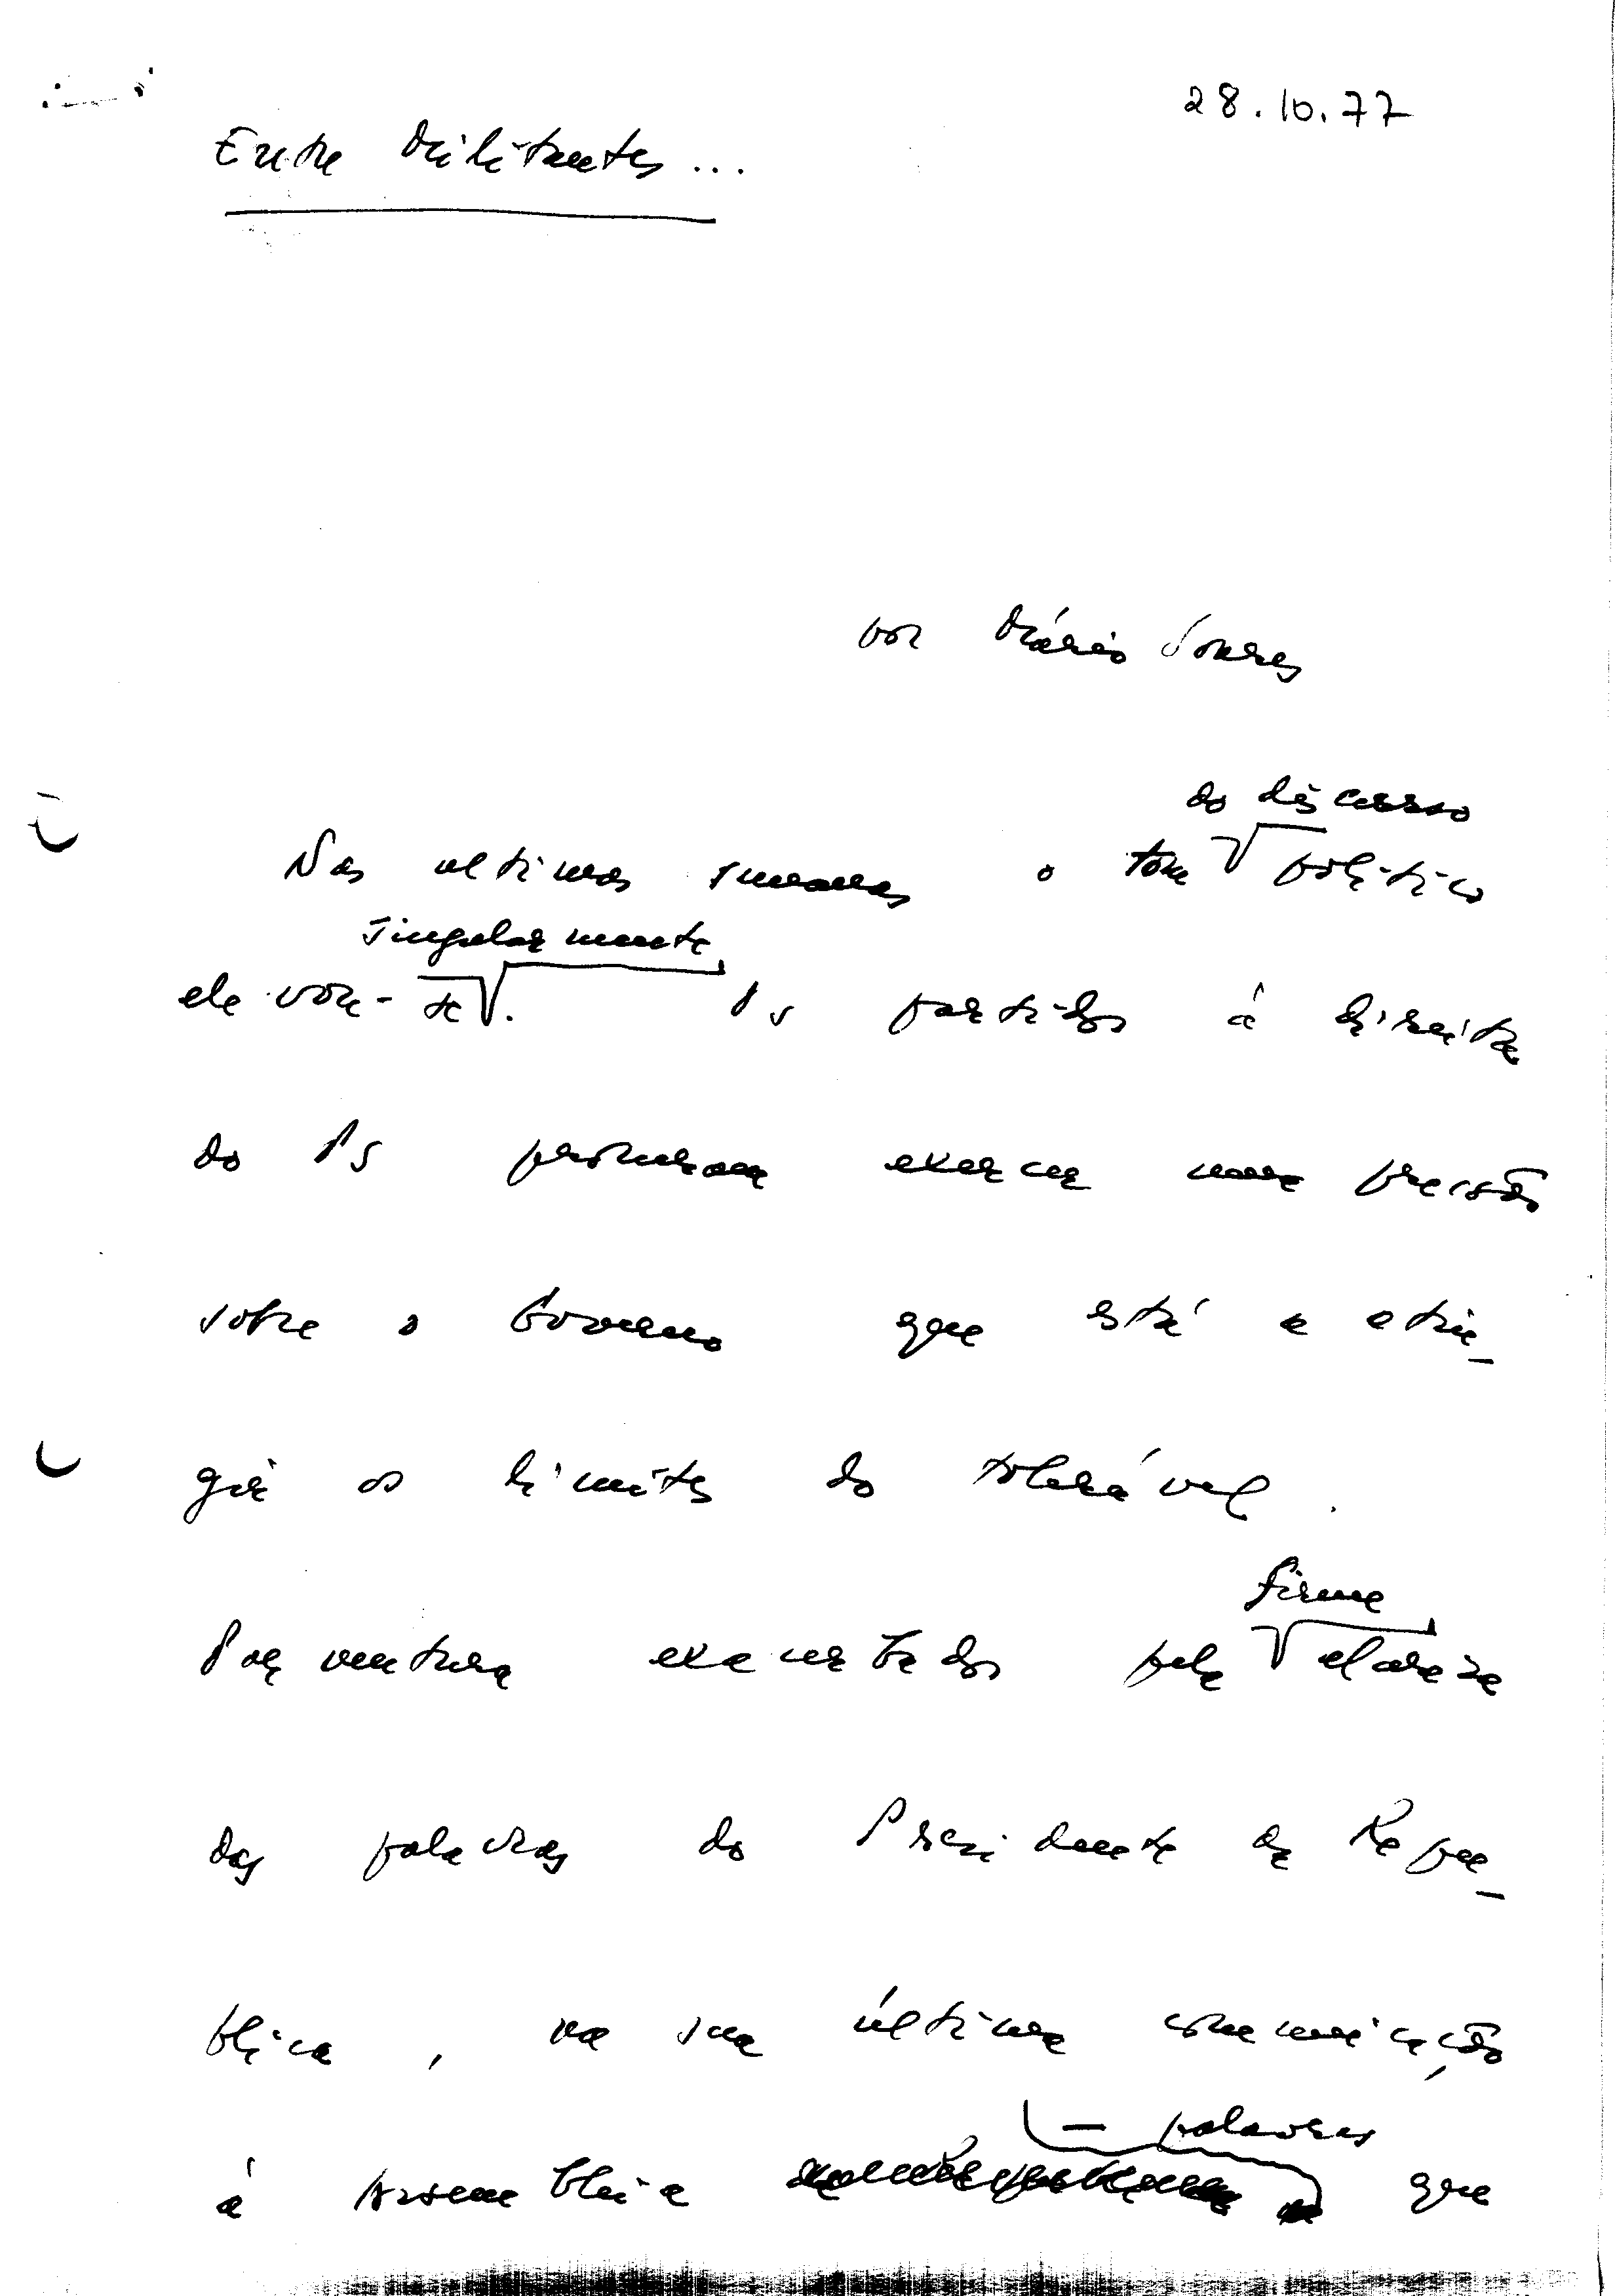 28.10.77
Entre Militantes...
por Mário Soares
do discurso
Nas ultimas semanas o tom político
singularmente
elevou-se. Os partidos à direita
do PS procuram exercer uma pressão
sobre o Governo que está a atin-
gir os limites do tolerável.
firme
Porventura exacerbados pela clareza
das palavras do Presidente da Repu-
blica, na sua última comunicação
— palavras
à Assembleia que